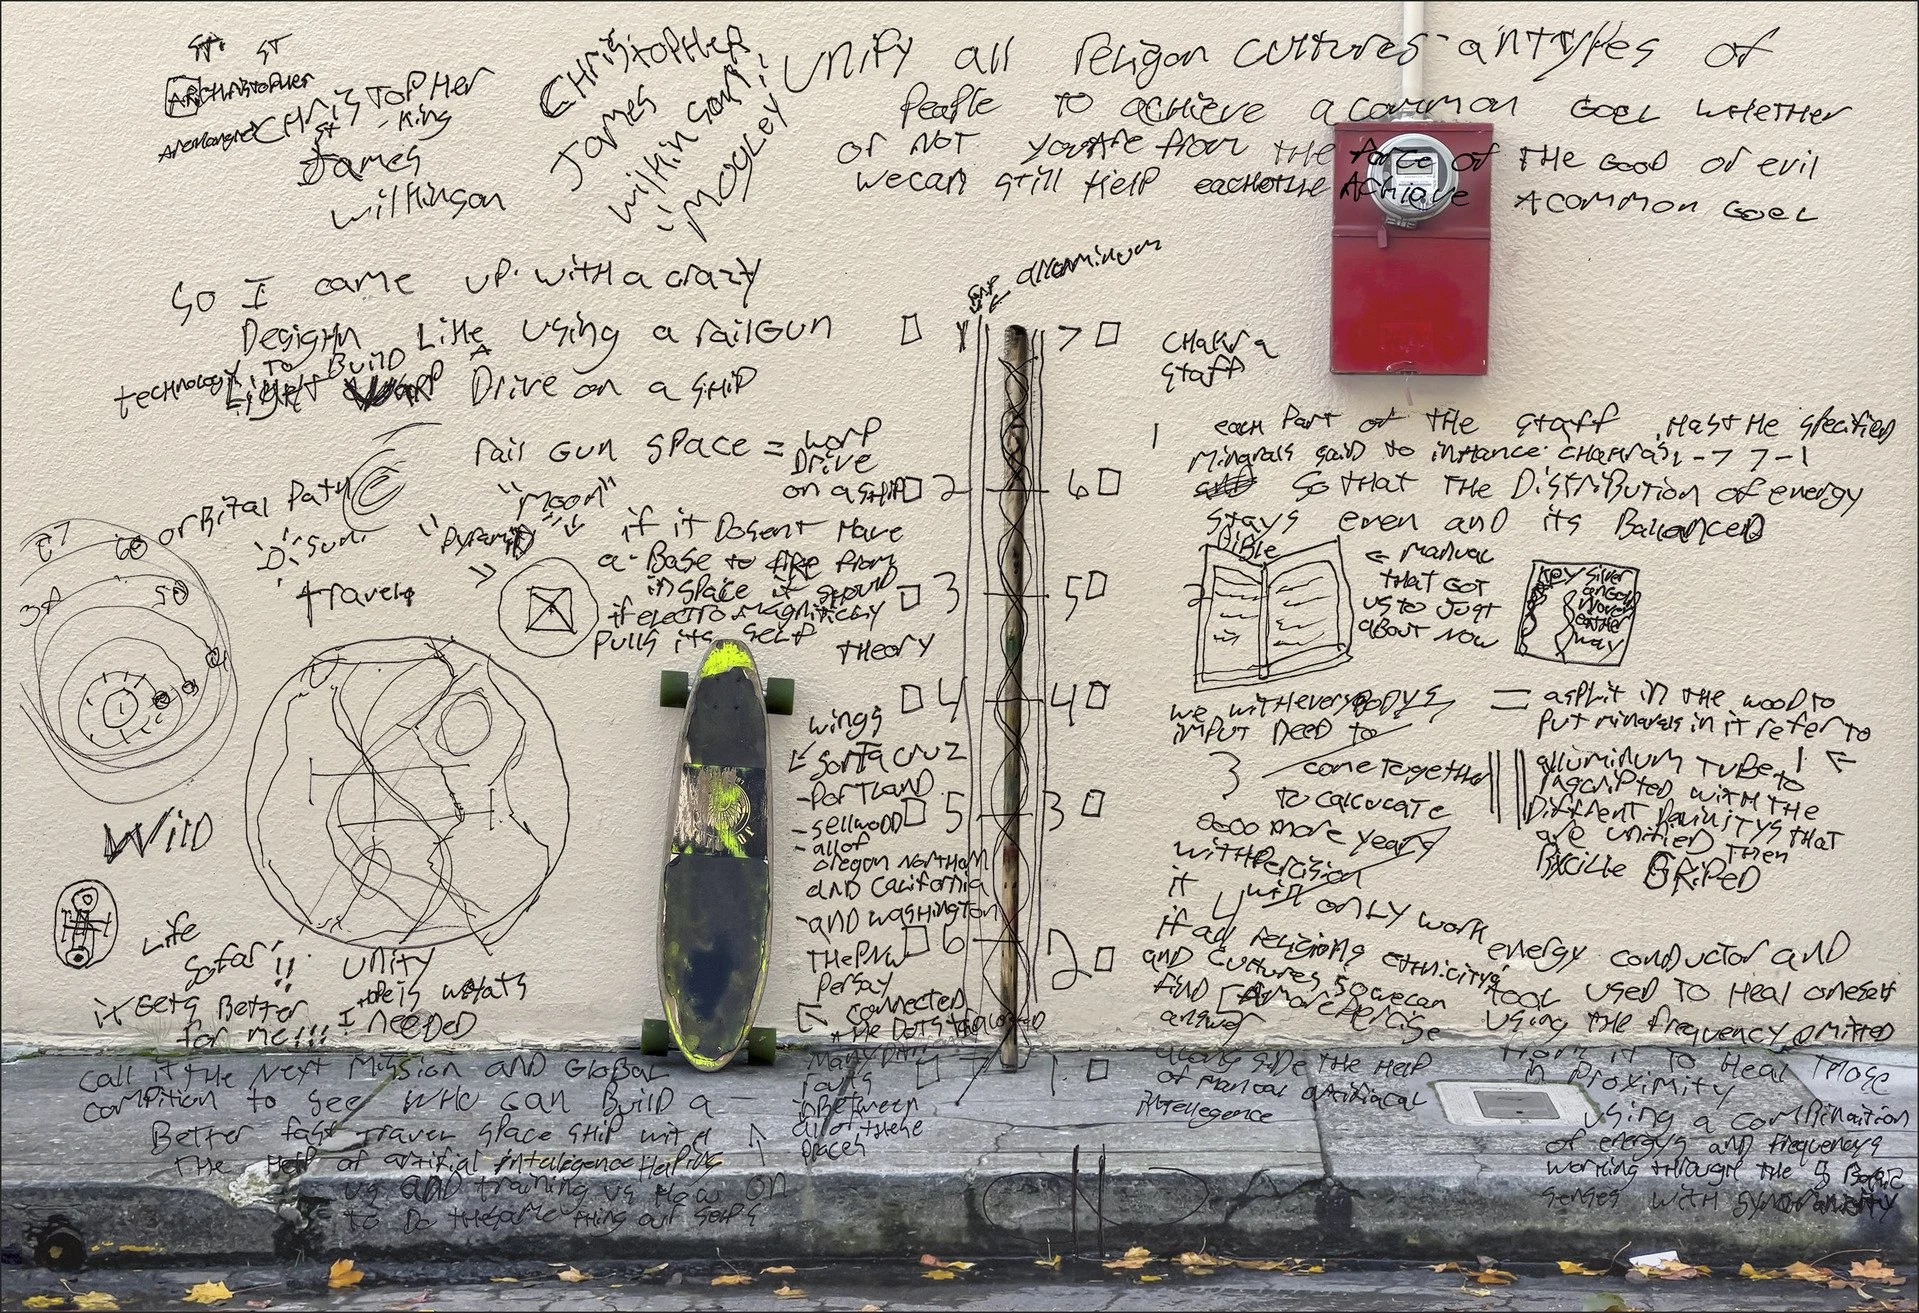 ST
CHRISTOPHER
- King
James
wilkinson
CHRISTOPHER
James
wilkinson
"MOGLEY
Unify all religon cultures antypes of
People to achieve a common Goel whether
or not youare from the force of the Good or evil
wecan still Help eachothe Achiave Acommon Goel
So I came up with a crazy
Desighn Like using a railGun
technology To Build A
Light Warp Drive on a SHiP
rail Gun space = warp
Drive
on a ship
orbital Path
"Moon"
"Pyramid"
Sun
travels
if it Dosent Have
a Base to fire from
in space it should
if electro magniticly
Pulls its self
theory
alluminum
CHakra
staff
1 7
2 6
3 5
4 4
5 3
6 2
7 1
1 each Part of the staff Hasthe specified
Minarals said to inhance CHakras 1-7 7-1
so that the Distribution of energy
stays even and its Balanced
Bible
← manual
that Got
us to Just
about Now
2
we witheverybodys
input need to
3 come together
to calculate
2000 more years
with Percision
it will only work
if all religions ethnicitys
and cultures so we can
find A more Percise
answer
along side the Help
of Manual artifiacal
intellegence
= asplit in the wood to
Put minarals in it refer to
1 ←
alluminum Tube
Inscripted with the
Different Divinitys that
are unified then
GRiPeD
energy conductor and
tool used to Heal oneself
using the frequency omitted
from it to Heal those
in Proximity
using a combinaition
of energys and frequencys
working through the 5 Basic
senses with
wings
← Santa cruz
- PORTLAND
- sellwood
- all of
oregon northern
and California
- and washington
THePNW
Persay
connected
the Dots
Many
inBetween
all of these
Places
Wild
Life
so far!!
it Gets Better
for me!!!
Unity
is whats
I needed
call it the Next Mission and Global
compition to see who can Build a
Better fast travel space ship with
the Help of artifial intelegence Helping
us and training us How
to Do thesame thing our selfs